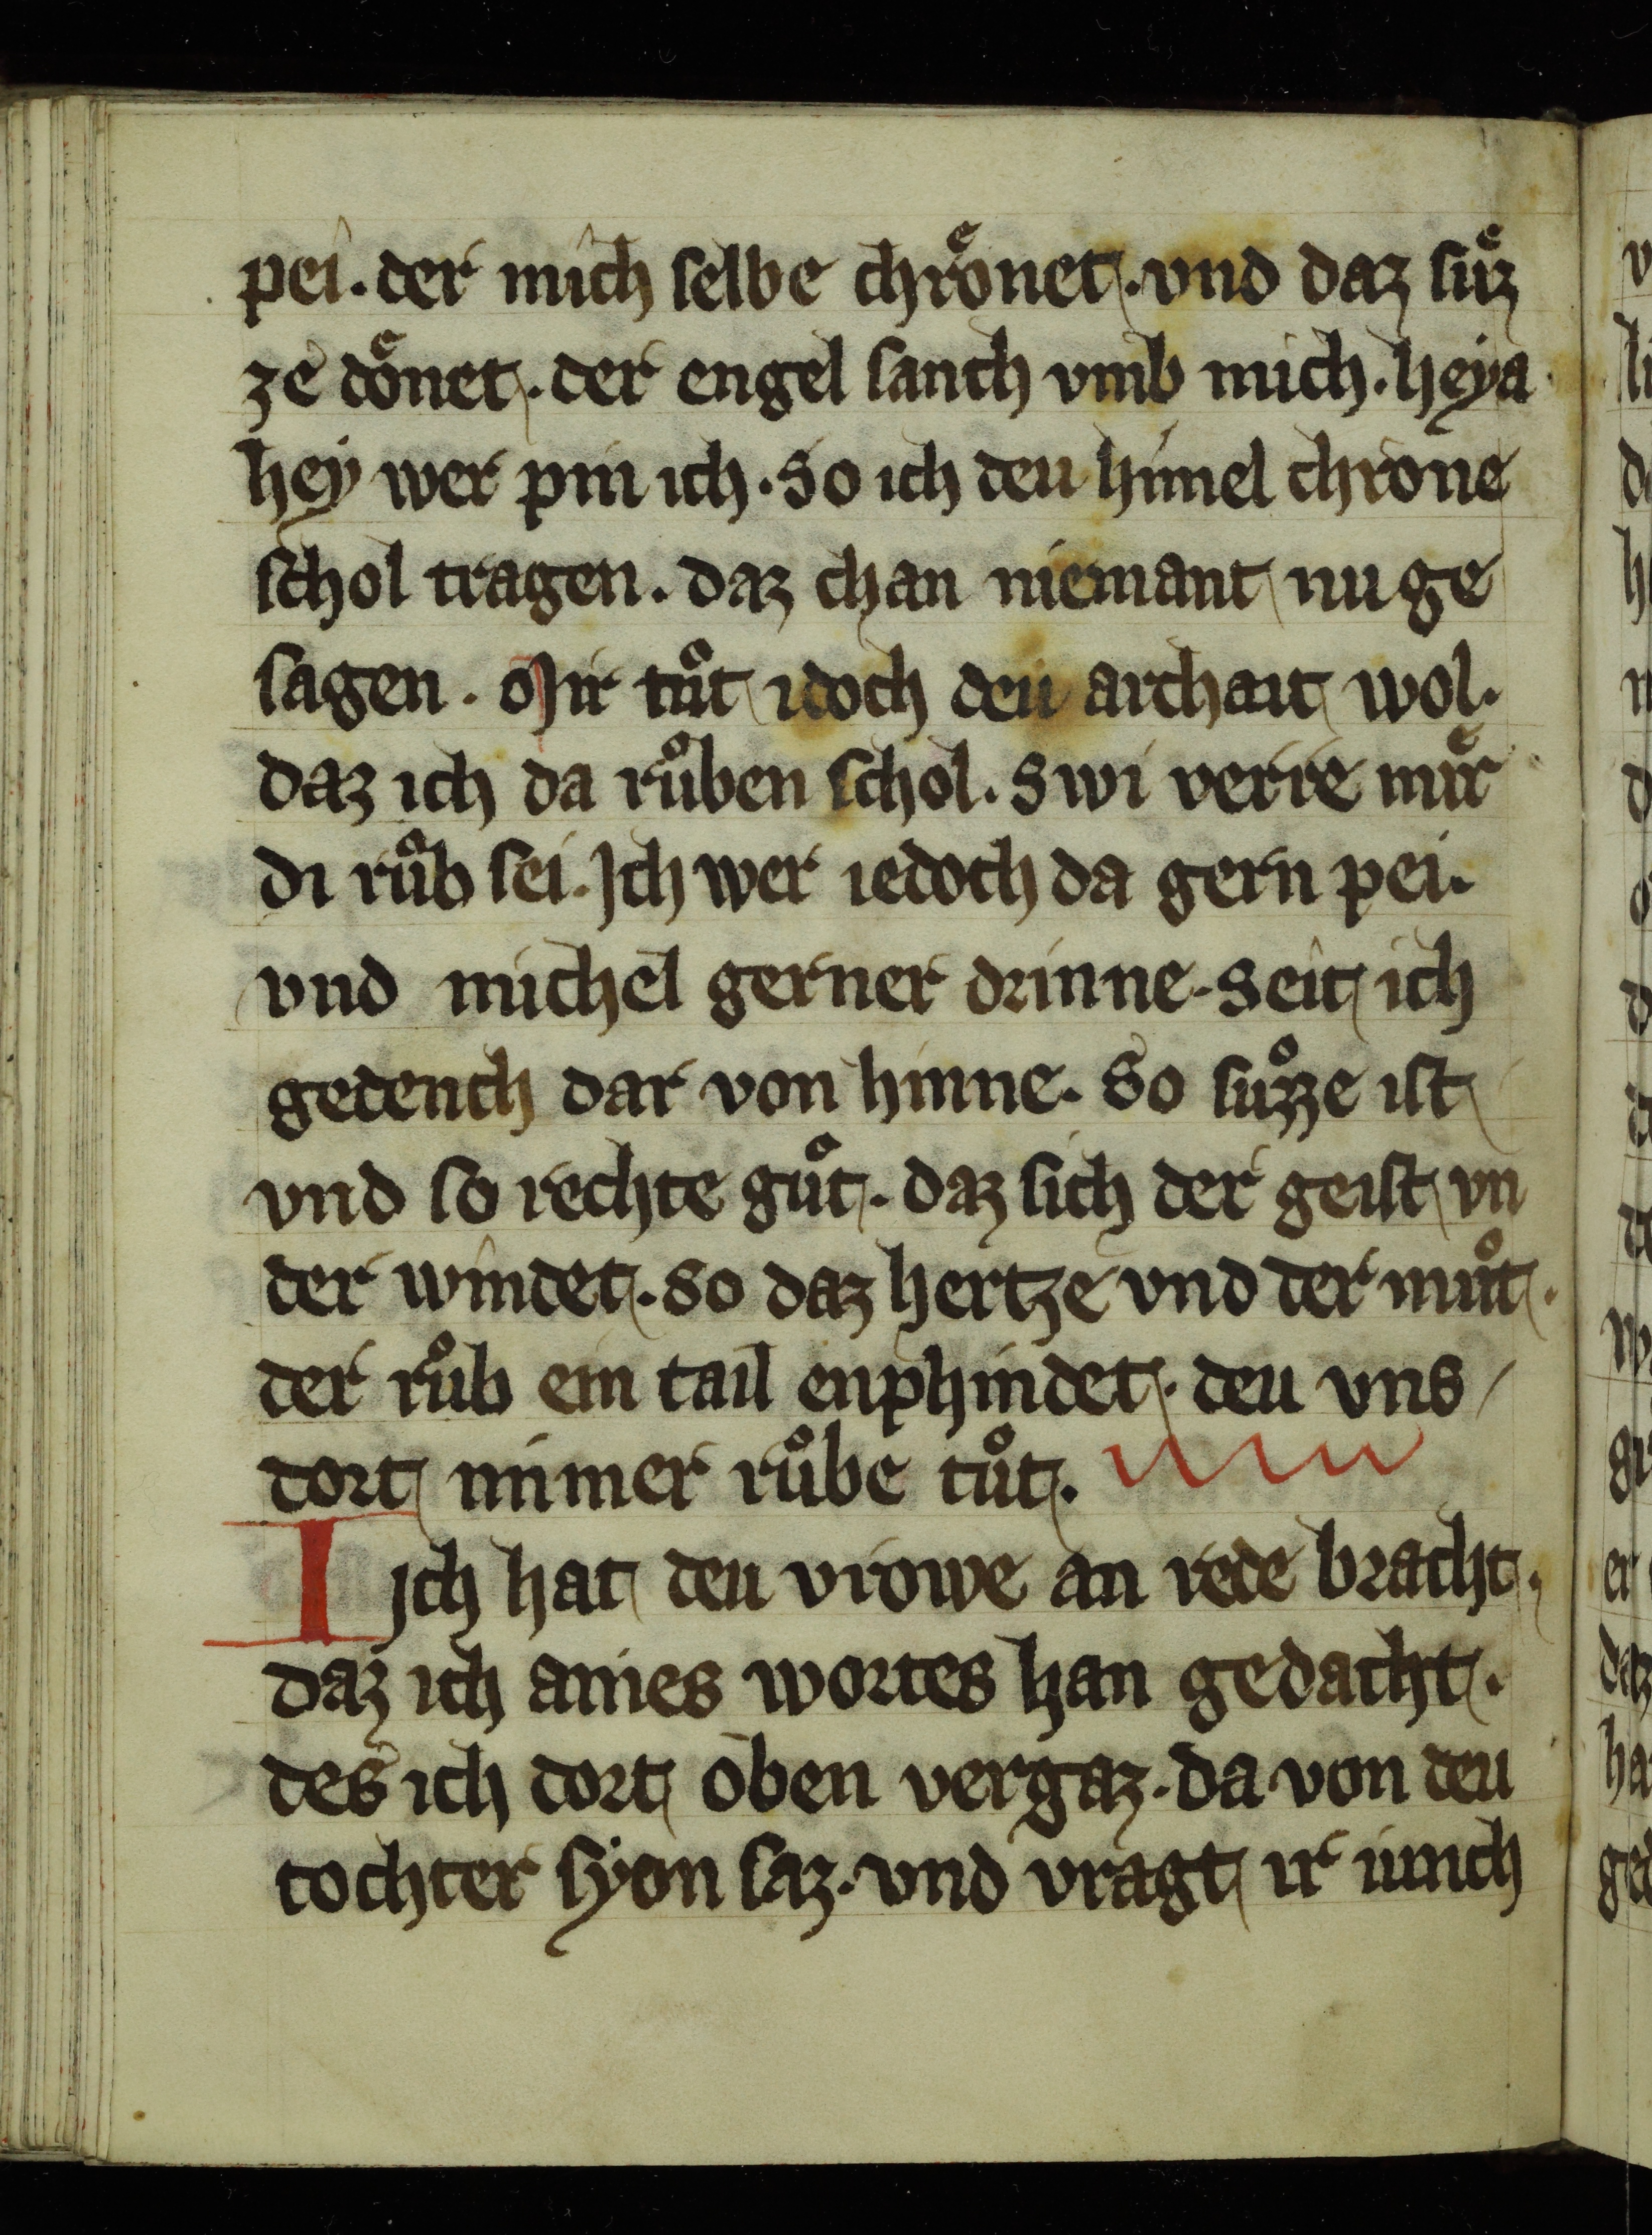 pei. der mich selbe chrͤonet. vnd daz sûͤz
ze dͤonet. der engel sanch vmb mich. heya
hey wer pin ich. So ich deu himel chrone
schol tragen. daz chan niemant nu ge
sagen. Mir tuͦt idoch deu archait wol.
daz ich da ruͦben schol. Swi verre muͤr
di ruͦb sei. Ich wer iedoch da gern pei.
vnd michel gerner drinne. Seit ich
gedench dar von hinne. So suͦzze ist
vnd so rechte guͦt. daz sich der geist vn
der windet. So daz hertze vnd der muͦt.
der ruͦb ein tail enphindet. deu vns
dort nimer ruͦbe tuͦt.
I ich hat deu vrowe an rede bracht.
daz ich aines wortes han gedacht.
des ich dort oben vergaz. da von deu
tochter syon saz. vnd vragt ir iunch